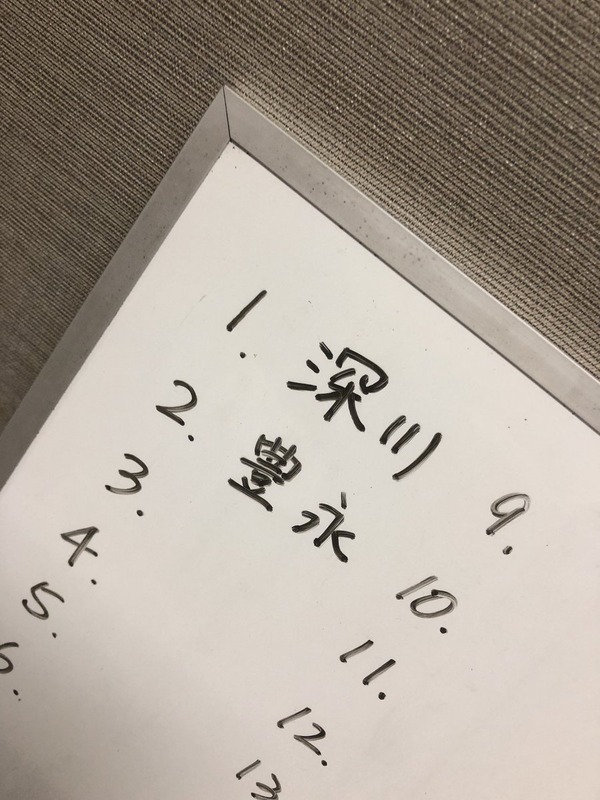 1. 深川
2. 豊永
3.
4.
5.
6.
9.
10.
11.
12.
13